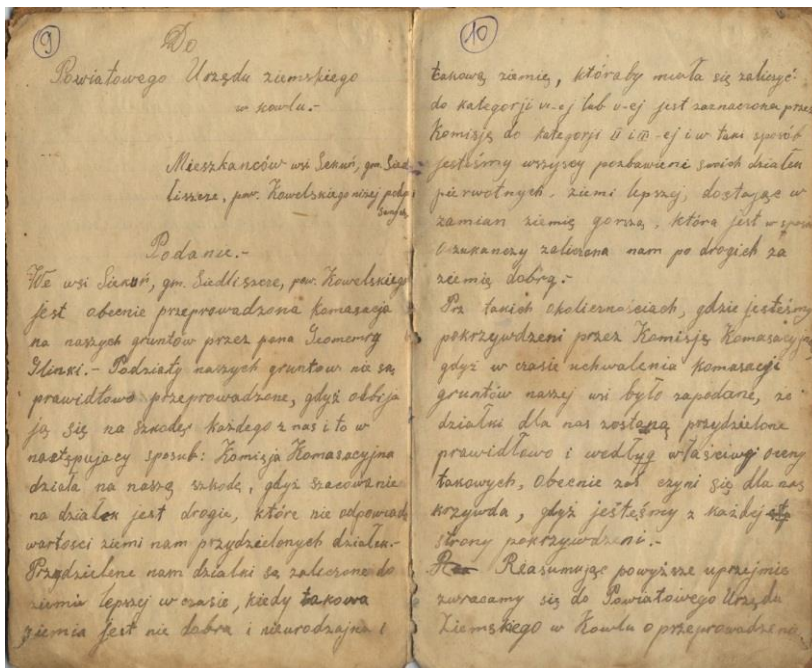 9
Do
Powiatowego Urzędu ziemskiego
w kowlu.-
Mieszkańców wsi Siekuń, gm. Sied-
liszcze, pow. Kowelskiego niżej podpi
sanych
Podanie.-
We wsi Siekuń, gm. Siedliszcze, pow. Kowelskiego
jest obecnie przeprowadzona komasacja
na naszych gruntów przez pana Geomemrę
Glinki.- Podziały naszych gruntow nie są
prawidłowo przeprowadzone, gdyż odbija
ją się na szkodę każdego z nas i to w
następujacy sposub: Komisja Komasacyjna
działa na naszą szkodę, gdyż szacowanie
na działek jest drogie, które nie odpowiada
wartosci ziemi nam przydzielonych działek.-
Przydzielene nam dzialki są zaleczone do
ziemie lepszej w czasie, kiedy takowa
ziemia jest nie dobra i nieurodzajna i
10
takową ziemię, któraby miała się zaliczyć
do kategorji VI-ej lub V-ej jest zaznaczona przez
Komisję do kategorji II i III-ej i w taki sposób
jesteśmy wszyscy pozbawieni swoich działek
pierwotnych, ziemi lepszej, dostając w
zamian ziemię gorszą, która jest w sposób
oszukanczy zaliczona nam po drogich za
ziemię dobrą.-
Prz takich okolicznościach, gdzie jesteśmy
pokrzywdzeni przez Komisję Komasacyjną
gdyż w czasie uchwalenia komasacji
gruntów naszej wsi było zapodane, że
działki dla nas zostaną przydzielone
prawidłowo i według właściwej oceny
takowych, obecnie zaś czyni się dla nas
krzywda, gdyż jesteśmy z każdej
strony pokrzywdzeni.-
Reasumując powyższe uprzejmie
zwracamy się do Powiatowego Urzędu
Ziemskiego w Kowlu o przeprowadzenie